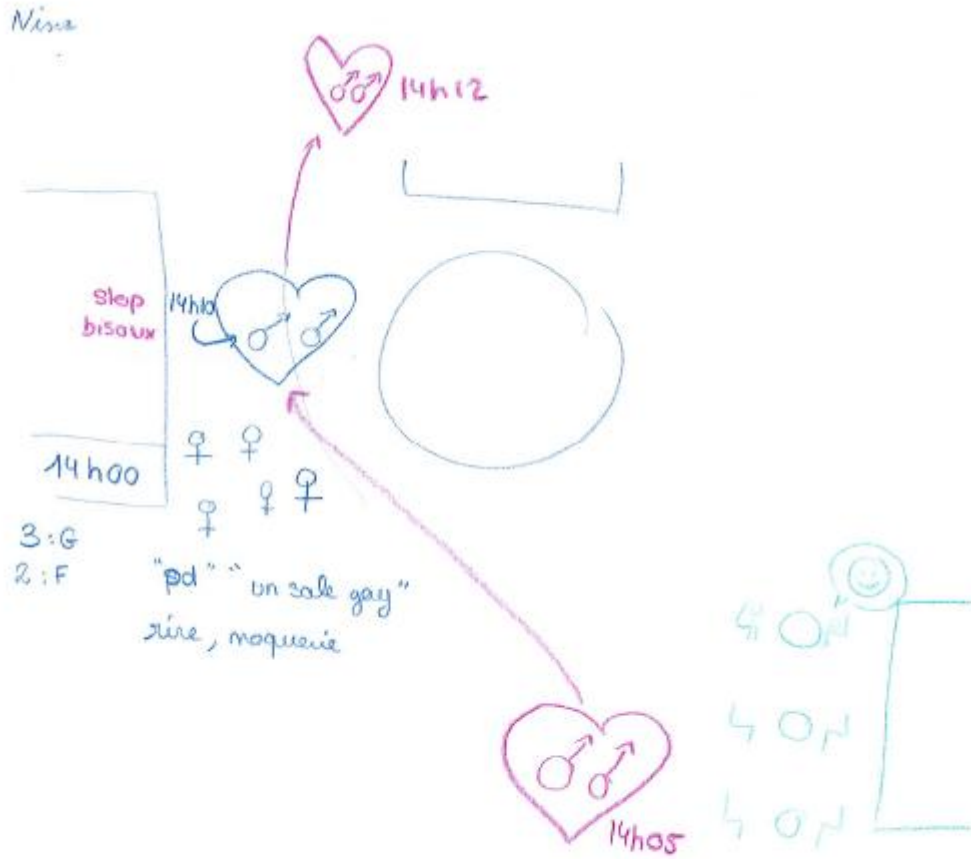 Nina
14h12
Stop
bisoux
14h10
14h00
3:G
2:F
"pd" "un sale gay"
rire, moquerie
14h05